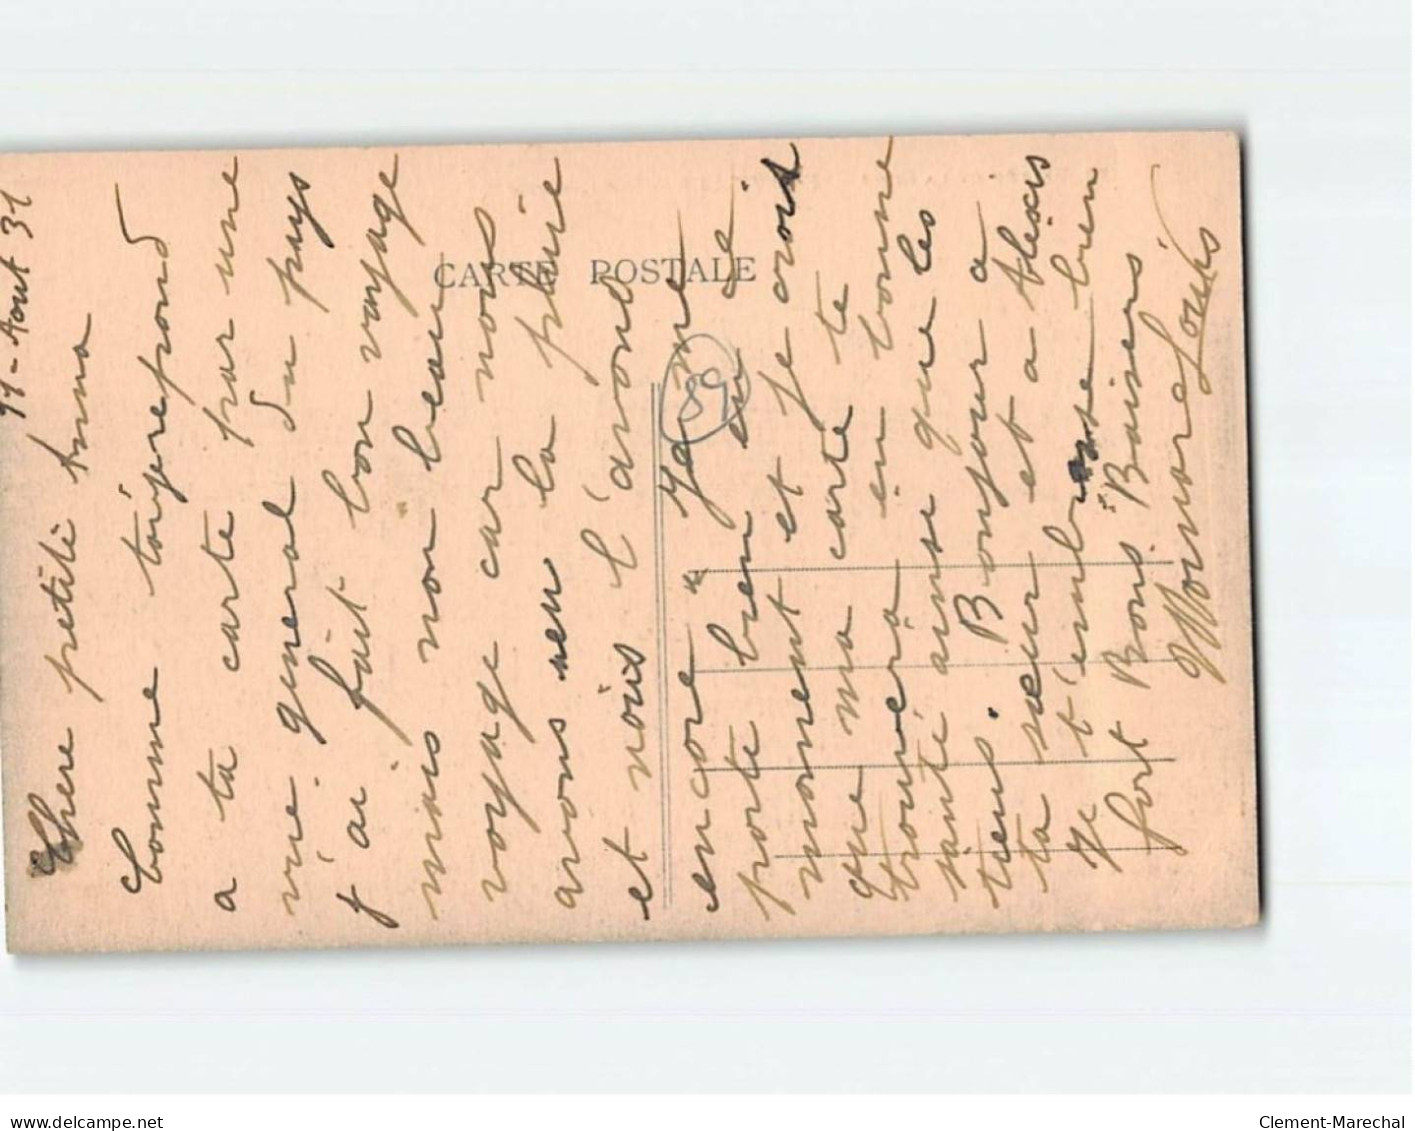 99 - Aout 31
Chere petite Anna
Comme toi je repond
a ta carte par une
vue general du pays
j'ai fait bon voyage
mais non beau
voyage car nous
avons eu la pluie
et nous l'avond
encore Je me
porte bien en ce
moment et je crois
que ma carte te
trouvera en bonne
santé ainsi que les
tiens. Bonjour a
ta sœur et a Alexis
Je t'embrasse bien
fort Bons Baisers
Louis
CARTE POSTALE
89
delcampe.net
Clement-Marechal